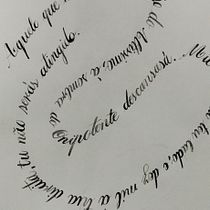 Aquele que
do Altíssimo, à sombra do
Onipotente descansará.
teu lado e dez mil à tua direita, tu não serás atingido.